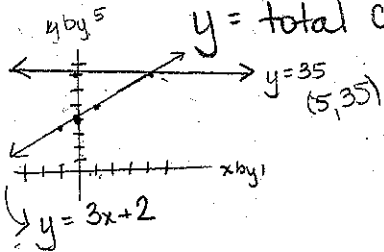 y by 5
y = total c
y = 35
(5,35)
x by 1
y = 3x+2